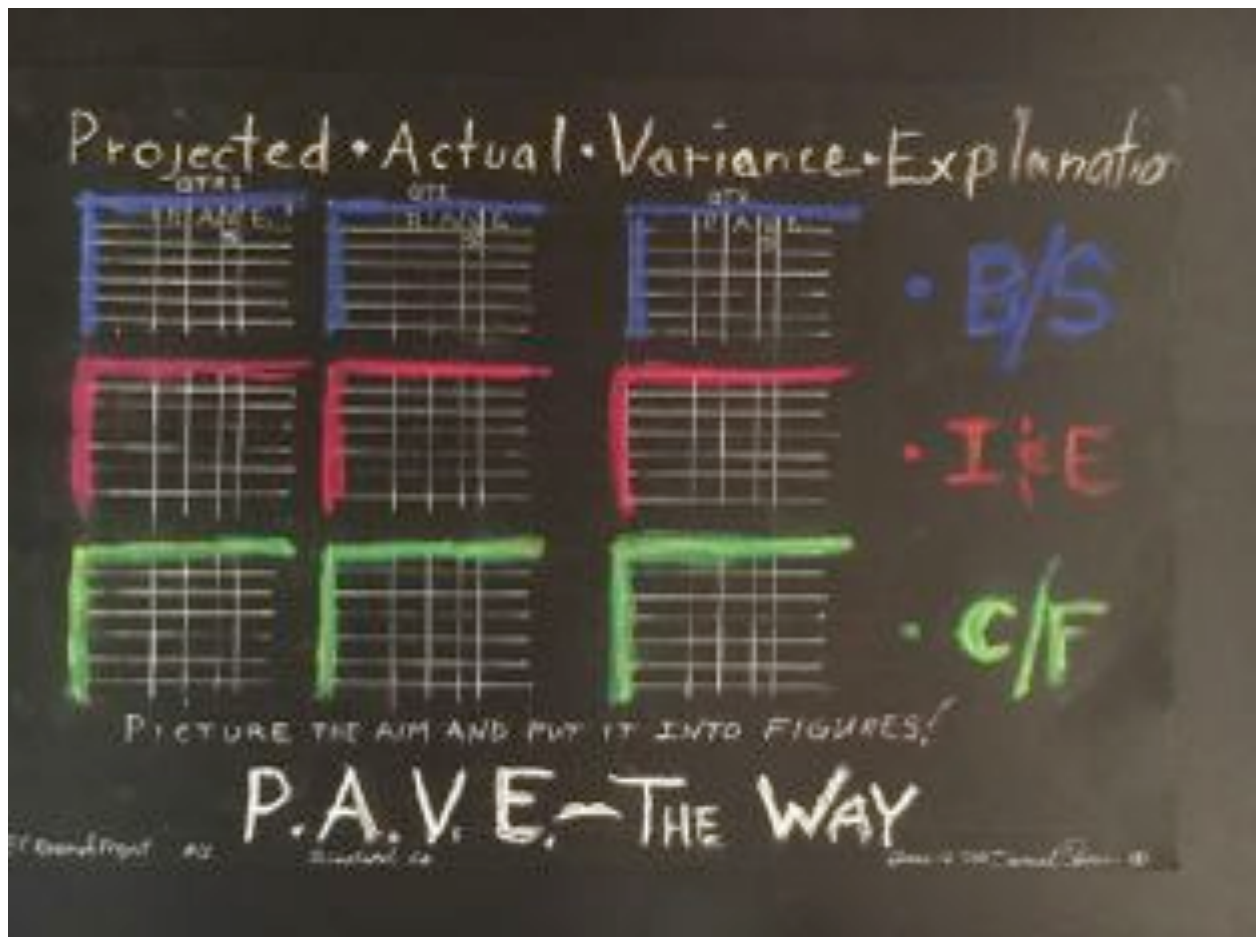 Projected • Actual • Variance • Explanatio
QTR 1
P A V E
P A V E
P A V E
• B/S
• I & E
• C/F
PICTURE THE AIM AND PUT IT INTO FIGURES!
P.A.V.E. — THE WAY